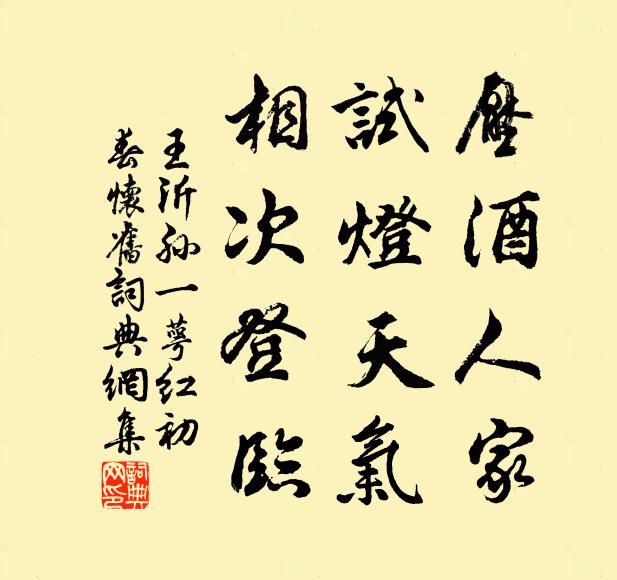 壓酒人家
試燈天氣
相次登臨
王沂孫一萼紅初
春懷舊詞典網集
詞典网印